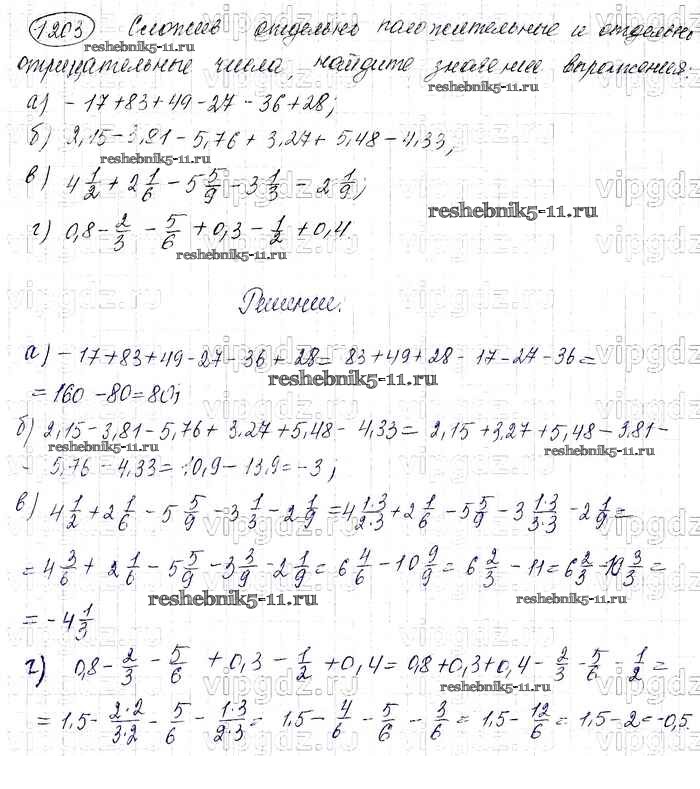 1203 Сложив отдельно положительные и отдельно
отрицательные числа, найдите значение выражения:
а) - 17 + 83 + 49 - 27 - 36 + 28;
б) 2,15 - 3,81 - 5,76 + 3,27 + 5,48 - 4,33;
в) 4 1/2 + 2 1/6 - 5 5/9 - 3 1/3 - 2 1/9;
г) 0,8 - 2/3 - 5/6 + 0,3 - 1/2 + 0,4.
Решение.
а) - 17 + 83 + 49 - 27 - 36 + 28 = 83 + 49 + 28 - 17 - 27 - 36 =
= 160 - 80 = 80;
б) 2,15 - 3,81 - 5,76 + 3,27 + 5,48 - 4,33 = 2,15 + 3,27 + 5,48 - 3,81 -
- 5,76 - 4,33 = 10,9 - 13,9 = -3;
в) 4 1/2 + 2 1/6 - 5 5/9 - 3 1/3 - 2 1/9 = 4 1·3/2·3 + 2 1/6 - 5 5/9 - 3 1·3/3·3 - 2 1/9 =
= 4 3/6 + 2 1/6 - 5 5/9 - 3 3/9 - 2 1/9 = 6 4/6 - 10 9/9 = 6 2/3 - 11 = 6 2/3 - 10 3/3 =
= - 4 1/3
г) 0,8 - 2/3 - 5/6 + 0,3 - 1/2 + 0,4 = 0,8 + 0,3 + 0,4 - 2/3 - 5/6 - 1/2 =
= 1,5 - 2·2/3·2 - 5/6 - 1·3/2·3 = 1,5 - 4/6 - 5/6 - 3/6 = 1,5 - 12/6 = 1,5 - 2 = -0,5.
reshebnik5-11.ru
vipgdz